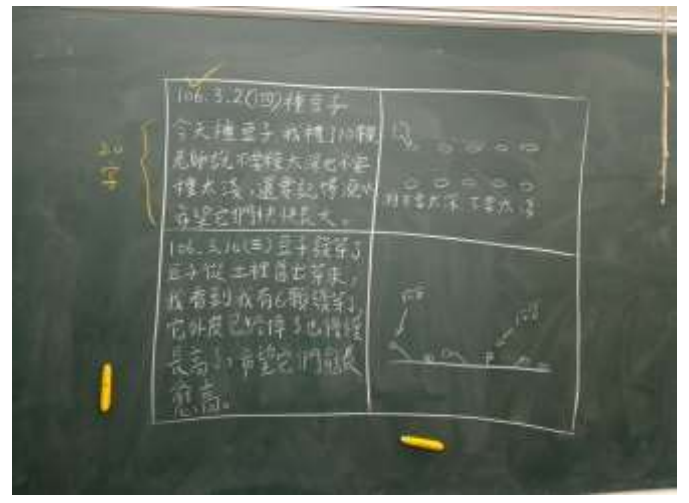 106.3.2(四)種豆子
今天種豆子,我種了10顆
老師說不要種太深也不要
種太淺,還要記得澆水
希望它們快快長大。
20
字
不要太深 不要太
106.3.16(三)豆子發芽了
豆子從土裡冒出芽來,
我看到我有6顆發芽了,
它外皮已經掉了也慢慢
長高了,希望它們愈長
愈高。